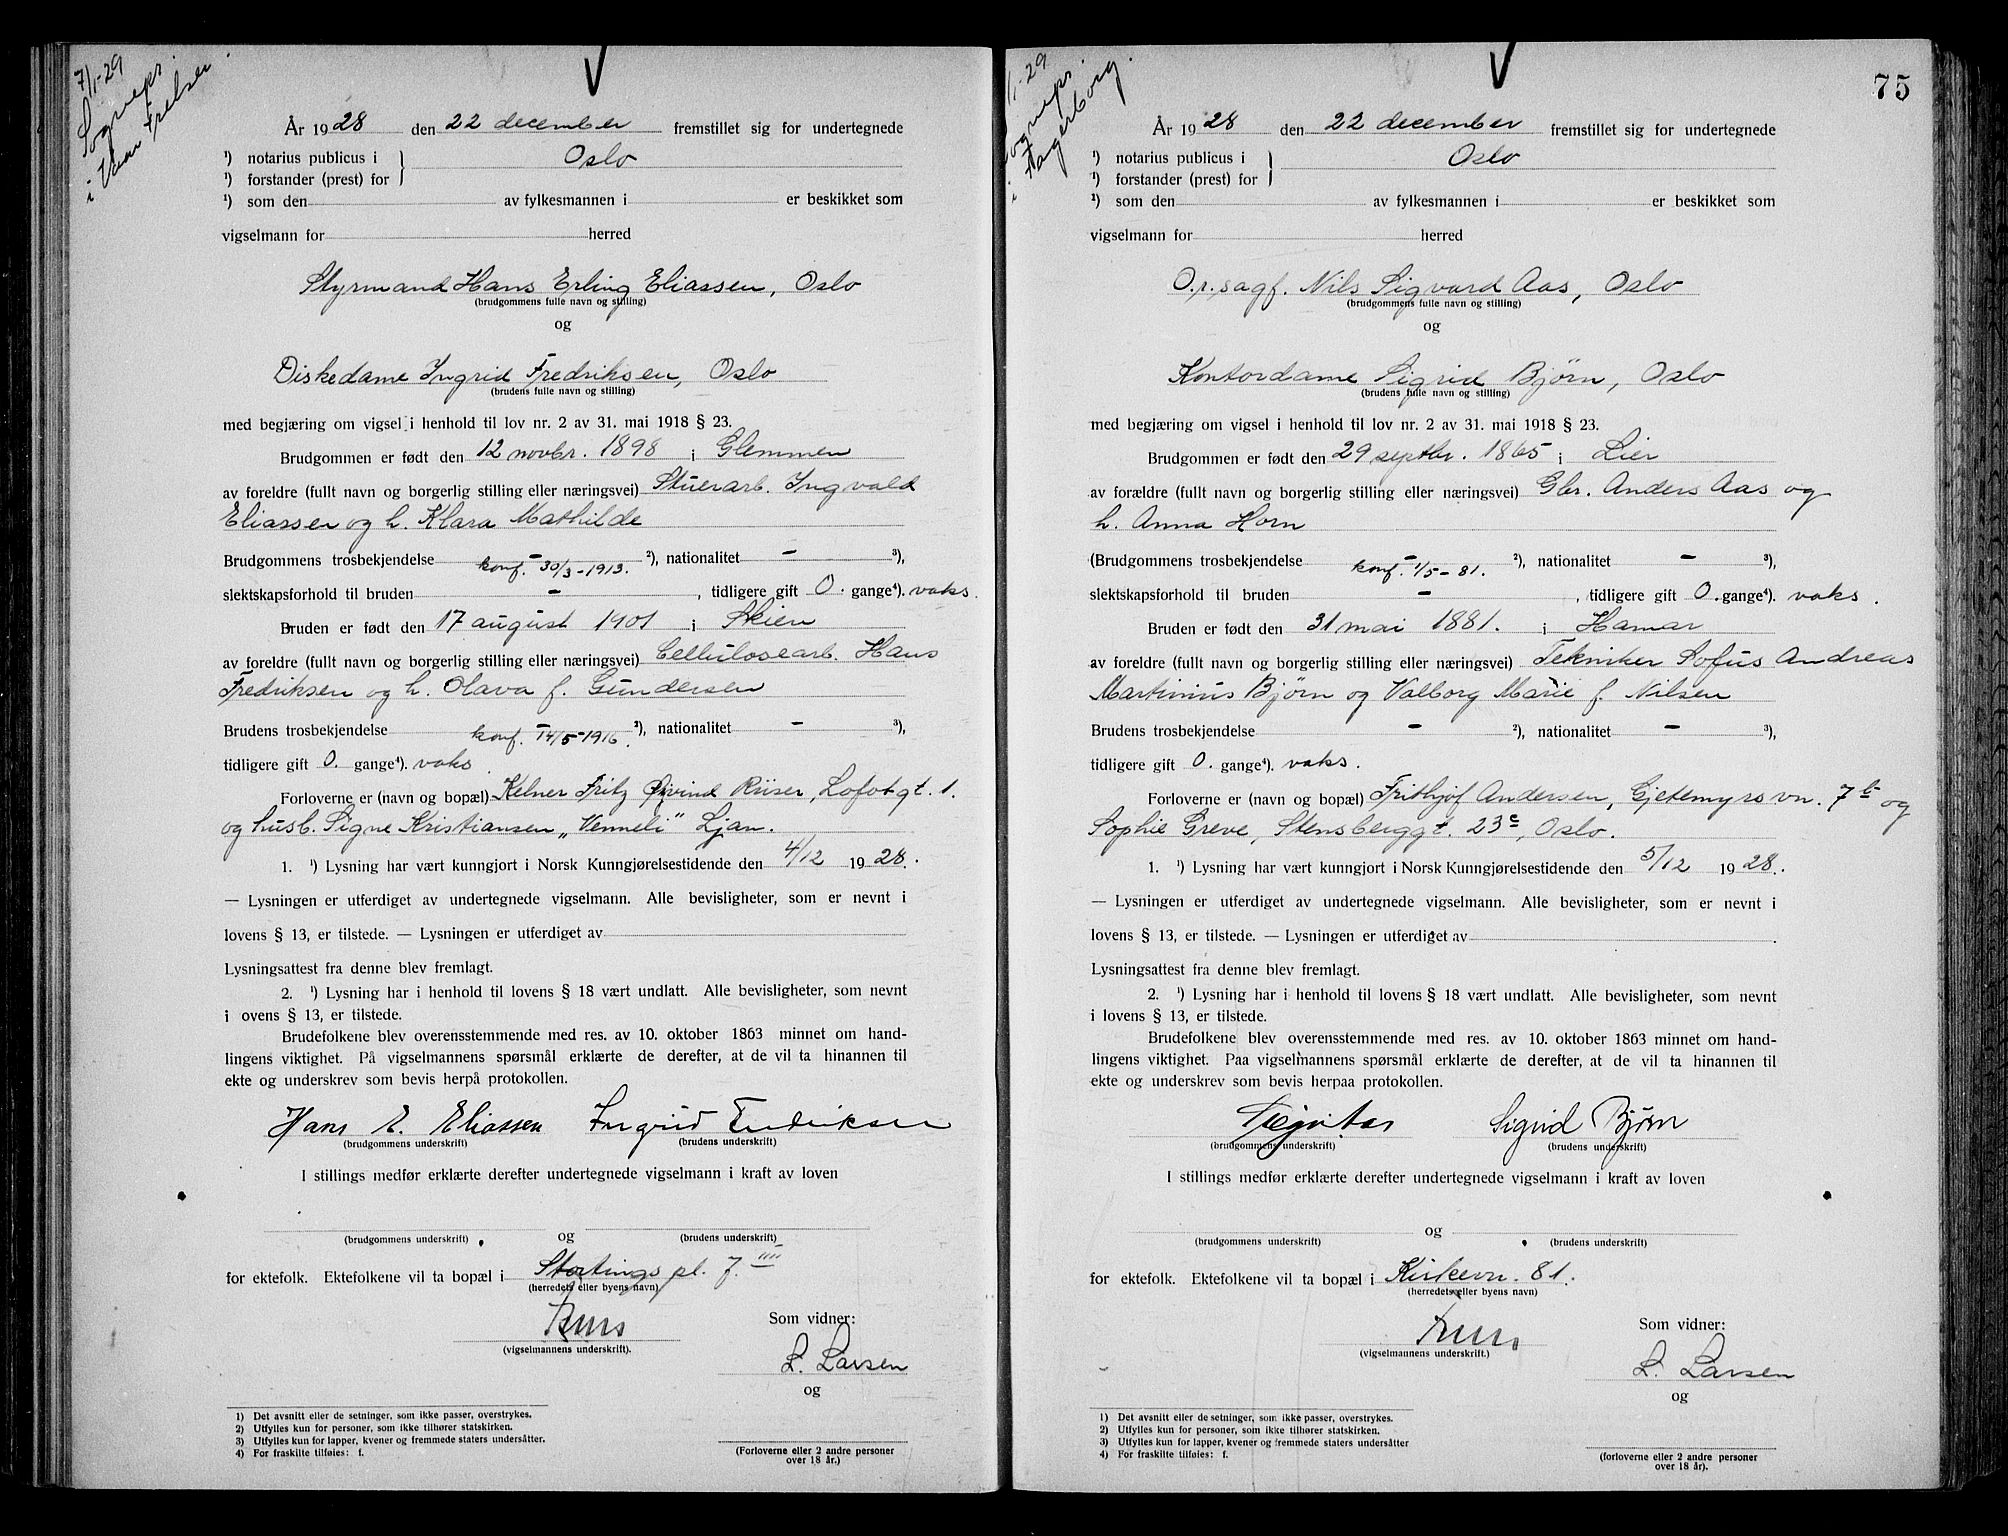 7/1-29
Sogneps.
i Vaar Frelser.
År 1928 den 22 december fremstillet sig for undertegnede
¹) notarius publicus i } Oslo
¹) forstander (prest) for
¹) som den av fylkesmannen i er beskikket som
vigselmann for herred
Styrmand Hans Erling Eliassen, Oslo
(brudgommens fulle navn og stilling)
og
Diskedame Ingrid Fredriksen, Oslo
(brudens fulle navn og stilling)
med begjæring om vigsel i henhold til lov nr. 2 av 31. mai 1918 § 23.
Brudgommen er født den 12 novbr. 1898 i Glemmen
av foreldre (fullt navn og borgerlig stilling eller næringsvei) Stuerarb. Ingvald
Eliassen og h. Klara Mathilde
Brudgommens trosbekjendelse - ²), nationalitet - ³),
konf. 30/3-1913.
slektskapsforhold til bruden - , tidligere gift 0. gange⁴). vaks.
Bruden er født den 17 august 1901 i Skien
av foreldre (fullt navn og borgerlig stilling eller næringsvei) Cellulosearb. Hans
Fredriksen og h. Olava f. Gundersen
Brudens trosbekjendelse - ²), nationalitet - ³),
konf. 14/5-1916.
tidligere gift 0. gange⁴). vaks
Forloverne er (navn og bopæl) Kelner Fritz Øivind Riiser, Lofotgt. 1.
og husb. Signe Kristiansen „Venneli" Ljan.
1. ¹) Lysning har vært kunngjort i Norsk Kunngjørelsestidende den 4/12 1928.
— Lysningen er utferdiget av undertegnede vigselmann. Alle bevisligheter, som er nevnt i
lovens § 13, er tilstede. — Lysningen er utferdiget av
Lysningsattest fra denne blev fremlagt.
2. ¹) Lysning har i henhold til lovens § 18 vært undlatt. Alle bevisligheter, som nevnt
i ovens § 13, er tilstede.
Brudefolkene blev overensstemmende med res. av 10. oktober 1863 minnet om hand-
lingens viktighet. På vigselmannens spørsmål erklærte de derefter, at de vil ta hinannen til
ekte og underskrev som bevis herpå protokollen.
Hans E. Eliassen Ingrid Fredriksen
(brudgommens underskrift) (brudens underskrift)
I stillings medfør erklærte derefter undertegnede vigselmann i kraft av loven
og
(brudgommens underskrift) (brudens underskrift)
for ektefolk. Ektefolkene vil ta bopæl i Stortings pl. 7. ''''
(herredets eller byens navn)
Som vidner:
(vigselmannens underskrift).
L. Larsen
og
1) Det avsnitt eller de setninger, som ikke passer, overstrykes.
2) Utfylles kun for personer, som ikke tilhører statskirken.
3) Utfylles kun for lapper, kvener og fremmede staters undersåtter.
4) For fraskilte tilføies: f.
(Forloverne eller 2 andre personer
over 18 år.)
75
/1-29
ogneps.
i Fagerborg.
År 1928 den 22 december fremstillet sig for undertegnede
¹) notarius publicus i } Oslo
¹) forstander (prest) for
²) som den av fylkesmannen i er beskikket som
vigselmann for herred
O.r.sagf. Nils Sigvard Aas, Oslo
(brudgommens fulle navn og stilling)
og
Kontordame Sigrid Bjørn, Oslo
(brudens fulle navn og stilling)
med begjæring om vigsel i henhold til lov nr. 2 av 31. mai 1918 § 23.
Brudgommen er født den 29 septbr. 1865 i Lier
av forældre (fullt navn og borgerlig stilling eller næringsvei) Gbr. Anders Aas og
h. Anna Horn
(Brudgommens trosbekjendelse - ²), nationalitet - ³),
konf. 1/5-81.
slektskapsforhold til bruden - , tidligere gift 0. gange⁴). vaks.
Bruden er født den 31 mai 1881. i Hamar
av foreldre (fullt navn og borgerlig stilling eller næringsvei) Tekniker Sofus Andreas
Martinius Bjørn og Valborg Marie f. Nilsen
Brudens trosbekjendelse - ²), nationalitet - ³),
tidligere gift 0. gange⁴). vaks.
Forloverne er (navn og bopæl) Frithjof Andersen, Gjetemyrsvn. 7b og
Sophie Greve, Stensberggt. 23c, Oslo.
1. ¹) Lysning har vært kunngjort i Norsk Kunngjørelsestidende den 5/12 1928.
— Lysningen er utferdiget av undertegnede vigselmann. Alle bevisligheter, som er nevnt i
lovens § 13, er tilstede. — Lysningen er utferdiget av
Lysningsattest fra denne blev fremlagt.
2. ¹) Lysning har i henhold til lovens § 18 vært undlatt. Alle bevisligheter, som nevnt
i lovens § 13, er tilstede.
Brudefolkene blev overensstemmende med res. av 10. oktober 1863 minnet om hand-
lingens viktighet. Paa vigselmannens spørsmål erklærte de derefter, at de vil ta hinannen til
ekte og underskrev som bevis herpaa protokollen.
Sigrid Bjørn
(brudgommens underskrift) (brudens underskrift)
I stillings medfør erklærte derefter undertegnede vigselmann i kraft av loven
og
(brudgommens underskrift) (brudens underskrift)
for ektefolk. Ektefolkene vil ta bopæl i Kirkevn. 81.
(herredets eller byens navn)
Som vidner:
(vigselmannens underskrift.)
L. Larsen
og
1) Det avsnitt eller de setninger, som ikke passer, overstrykes.
2) Utfylles kun for personer, som ikke tilhører statskirken.
3) Utfylles kun for lapper, kvener og fremmede staters undersåtter
4) For fraskilte tilføies: f.
(forloverne eller 2 andre personer
over 18 år).